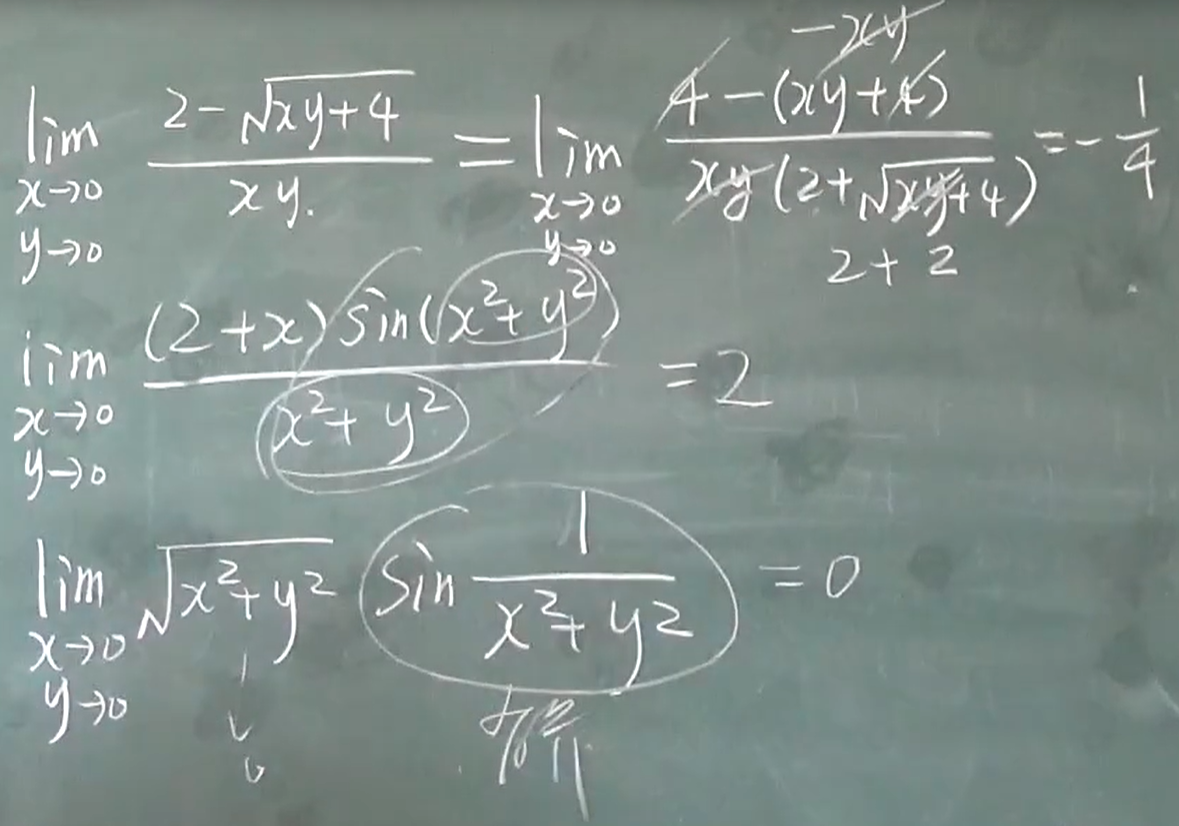 lim x→0 y→0 (2-√(xy+4))/(xy.) = lim x→0 y→0 (4-(xy+4))/(xy(2+√(xy+4))) = -1/4
-xy
2+2
lim x→0 y→0 ((2+x)sin(x²+y²))/(x²+y²) = 2
lim x→0 y→0 √(x²+y²) sin 1/(x²+y²) = 0
↓
0
有界